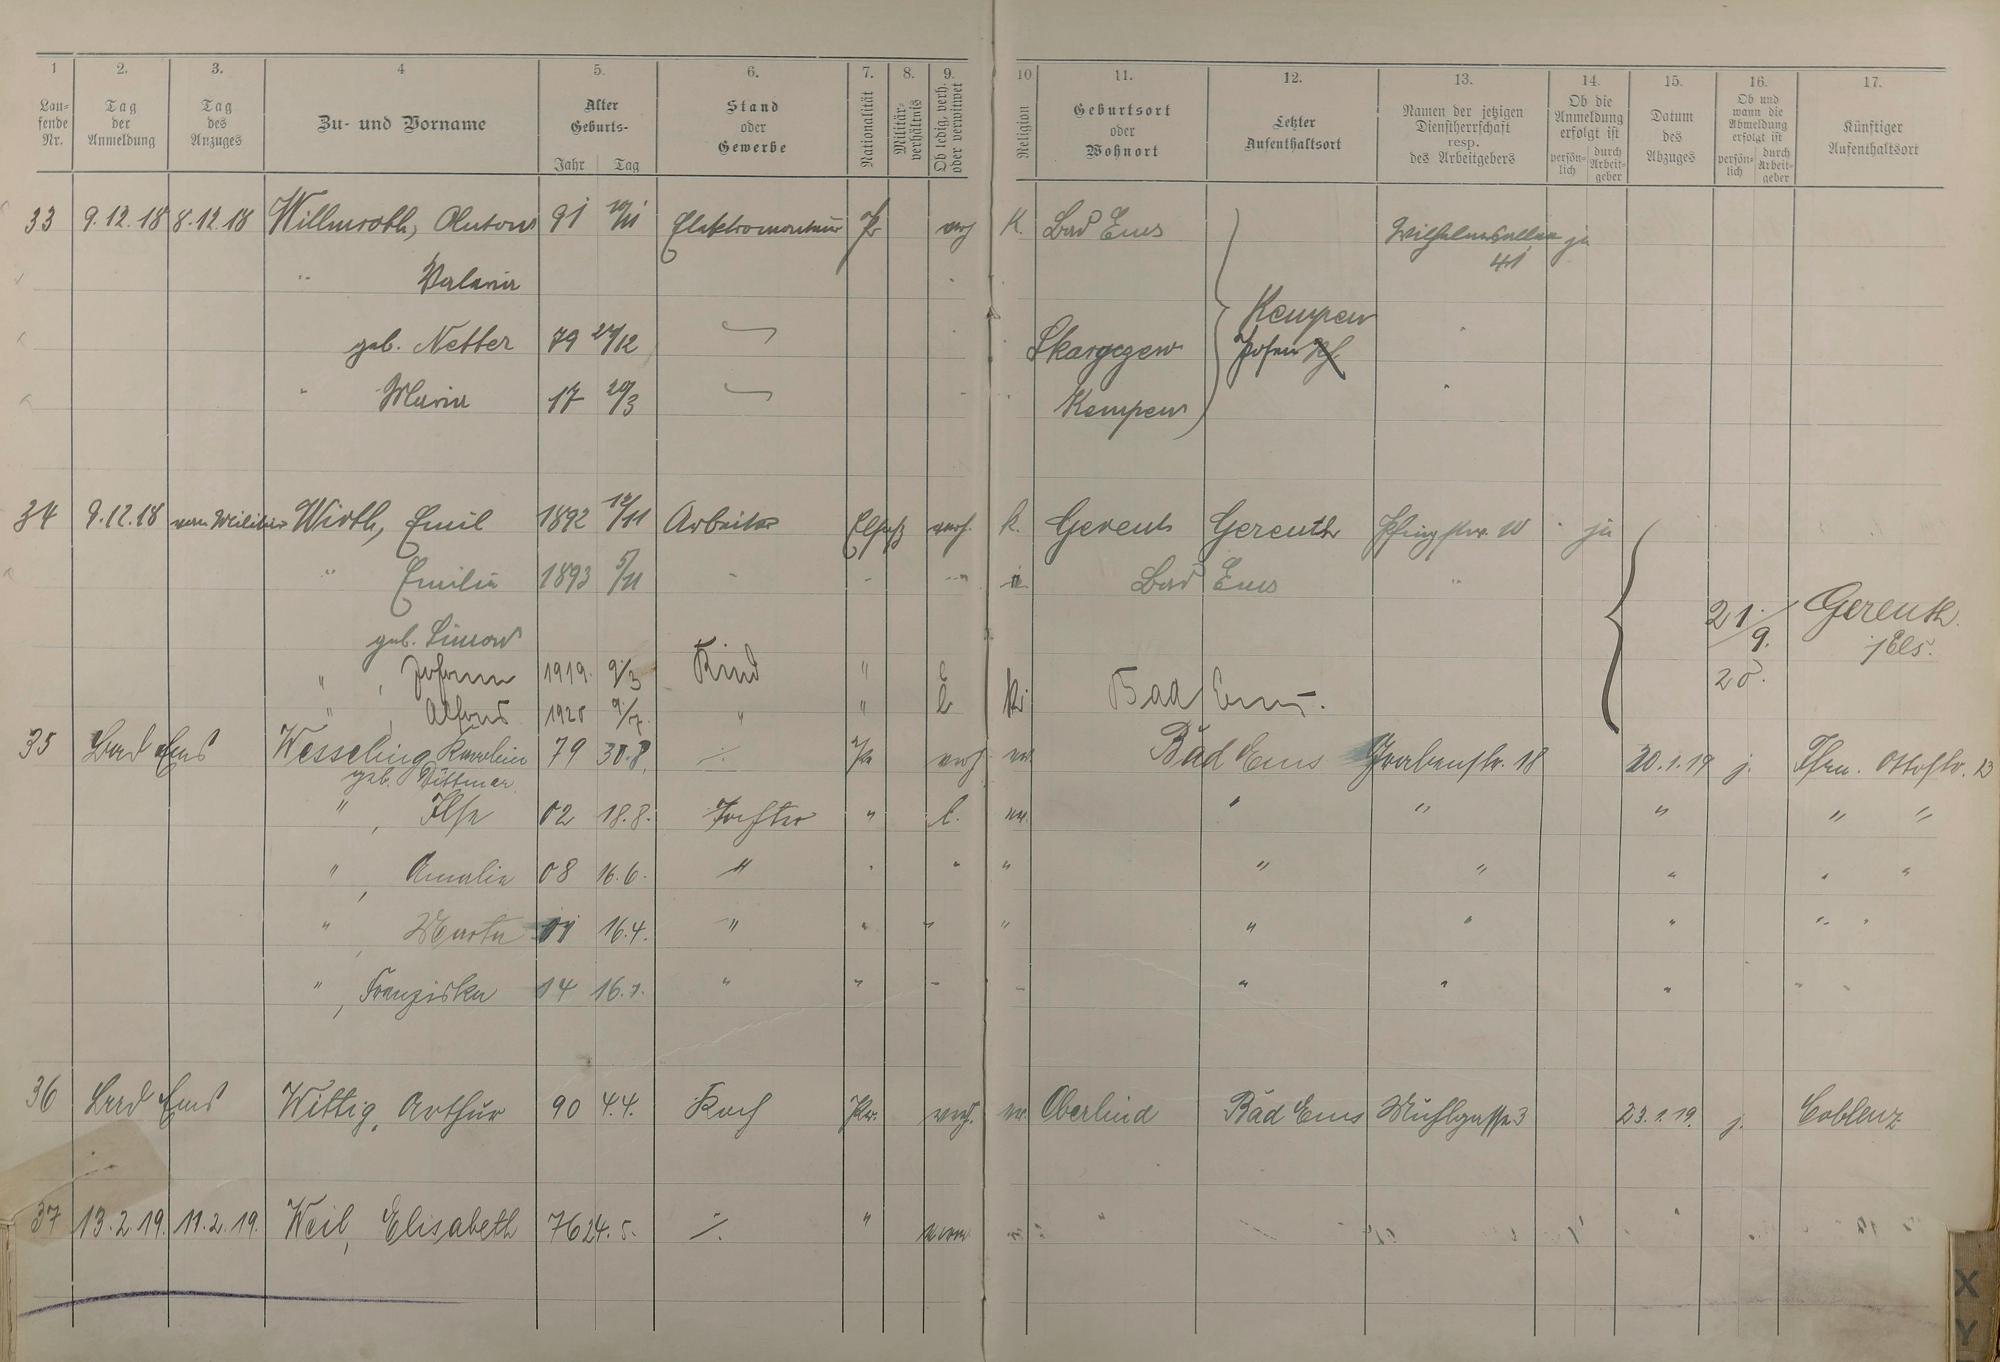 1 2. 3. 4 5. 6. 7. 8. 9. 10 11. 12. 13. 14. 15. 16. 17.
Lau- fende Nr. Tag der Anmeldung Tag des Anzuges Zu- und Vorname Alter Geburts- Jahr Tag Stand oder Gewerbe Nationalität Militär- verhältnis Ob ledig, verh. oder verwitwet Religion Geburtsort oder Wohnort Letzter Aufenthaltsort Namen der jetzigen Dienstherrschaft resp. des Arbeitgebers Ob die Anmeldung erfolgt ist persön- lich durch Arbeit- geber Datum des Abzuges Ob und wann die Abmeldung erfolgt ist persön- lich durch Arbeit- geber Künftiger Aufenthaltsort
33 9.12.18 8.12.18 Willmroth, Anton 91 Elektromonteur Pr verh K. Bad Ems Wilhelmsallee ja
41
" Valeria
Kempen
geb. Netter 79 27/12 Skargezew Posen
" Maria 17 29/3 Kempen
34 9.12.18 vom Militär Wirth, Emil 1892 12/11 Arbeiter Elsaß verh. k. Gereuth Gereuth Pfingstw. 10 ja
" Emilie 1893 5/11 - - Bad Ems "
geb. Simon
21/9. 20. Gereuth
i Els.
" , Johann 1919 9/3 Kind " l
" , Alfons 1920 9/7. " " l k Bad Ems.
35 Bad Ems Wesseling Karoline 79 30.8. ./. Pr verh ev. Bad Ems Grabenstr. 18 20.1.19 j. Ottostr. 13
geb. Dittmer
" , Ilse 02 18.8. Tochter " l. ev. " " " " "
" , Amalie 08 16.6. " " " " " " " " "
" , Marta 16.4. " " " " " " " " "
" , Franziska 14 16.7. " " " " " " " "
36 Bad Ems Wittig, Arthur 90 4.4. Koch Pr. verh. ev. Oberlind Bad Ems Mühlgasse 3 23.1.19. j. Coblenz
37 13.2.19. 11.2.19. Weil, Elisabeth 76 24.5. ./. "
X
Y